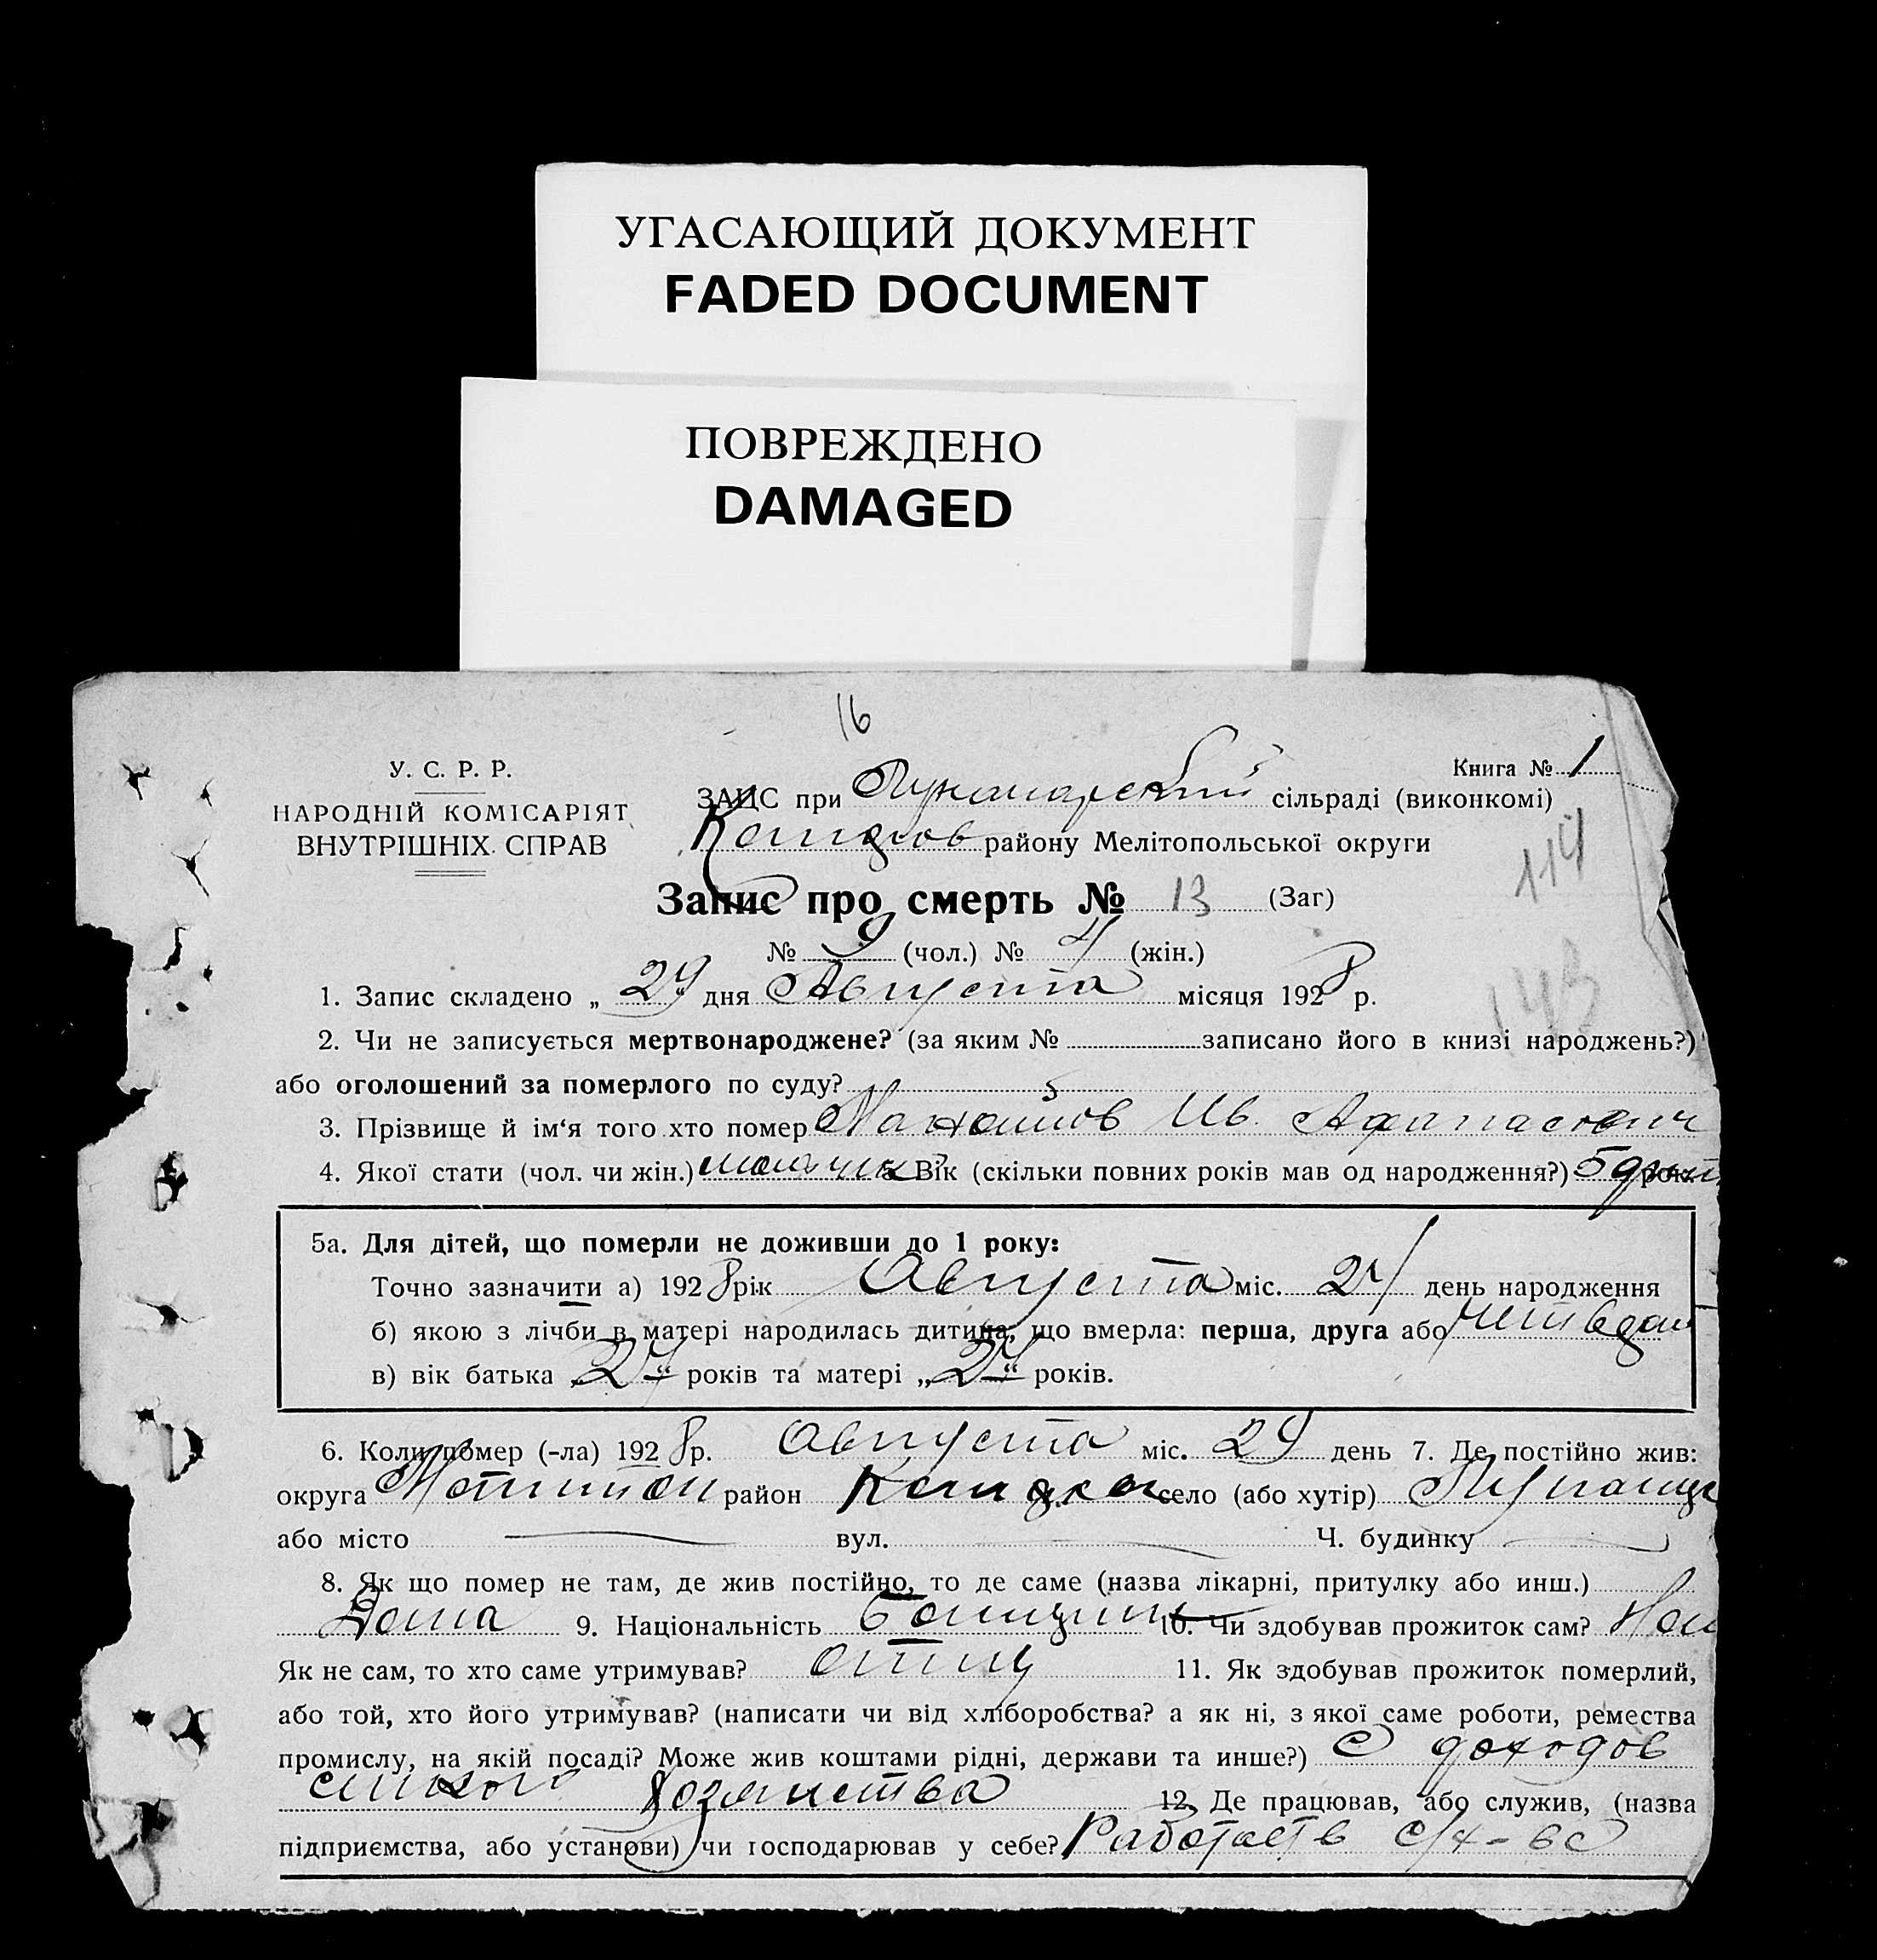 УГАСАЮЩИЙ ДОКУМЕНТ
FADED DOCUMENT
ПОВРЕЖДЕНО
DAMAGED
16
У. С. Р. Р.
НАРОДНІЙ КОМІСАРІЯТ
ВНУТРІШНІХ СПРАВ
Книга № 1
ЗАГС при сільраді (виконкомі)
району Мелітопольської округи
114
Запис про смерть № 13 (Заг)
№ 9 (чол.) № 4 (жін.)
143
1. Запис складено „ 29 “ дня Августа місяця 1928 р.
2. Чи не записується мертвонароджене? (за яким № записано його в книзі народжень?)
або оголошений за померлого по суду?
3. Прізвище й ім‘я того хто помер Ив. Афанасович
4. Якої стати (чол. чи жін.) 5. Вік (скільки повних років мав од народження?) 5 рок
5а. Для дітей, що померли не доживши до 1 року:
Точно зазначити а) 1928 рік Августа міс. 24 день народження
б) якою з лічби в матері народилась дитина, що вмерла: перша, друга або
в) вік батька „ 24 “ років та матері „ 24 “ років.
6. Коли помер (-ла) 1928 р. Августа міс. 29 день 7. Де постійно жив:
округа район село (або хутір)
або місто вул. Ч. будинку
8. Як що помер не там, де жив постійно, то де саме (назва лікарні, притулку або инш.)
Дома 9. Національність 10. Чи здобував прожиток сам?
Як не сам, то хто саме утримував? отец 11. Як здобував прожиток померлий,
або той, хто його утримував? (написати чи від хліборобства? а як ні, з якої саме роботи, ремества
промислу, на якій посаді? Може жив коштами рідні, держави та инше?) С доходов
хозяйства 12. Де працював, або служив, (назва
підприємства, або установи) чи господарював у себе? Работает в с/х-ве